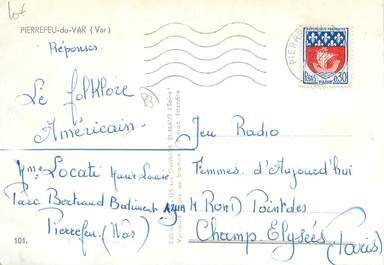 PIERREFEU-du-VAR (Var)
Réponses.
Le folklore
Américain.
Mme Locati Marie Louise
Parc Bertrand Batiment
Pierrefeu (Var)
101.
REPUBLIQUE FRANÇAISE
PARIS 0,30
PIERR
Jeu Radio
Femmes d'Aujourd'hui
Rond Point des
Champ Elysées (Paris)